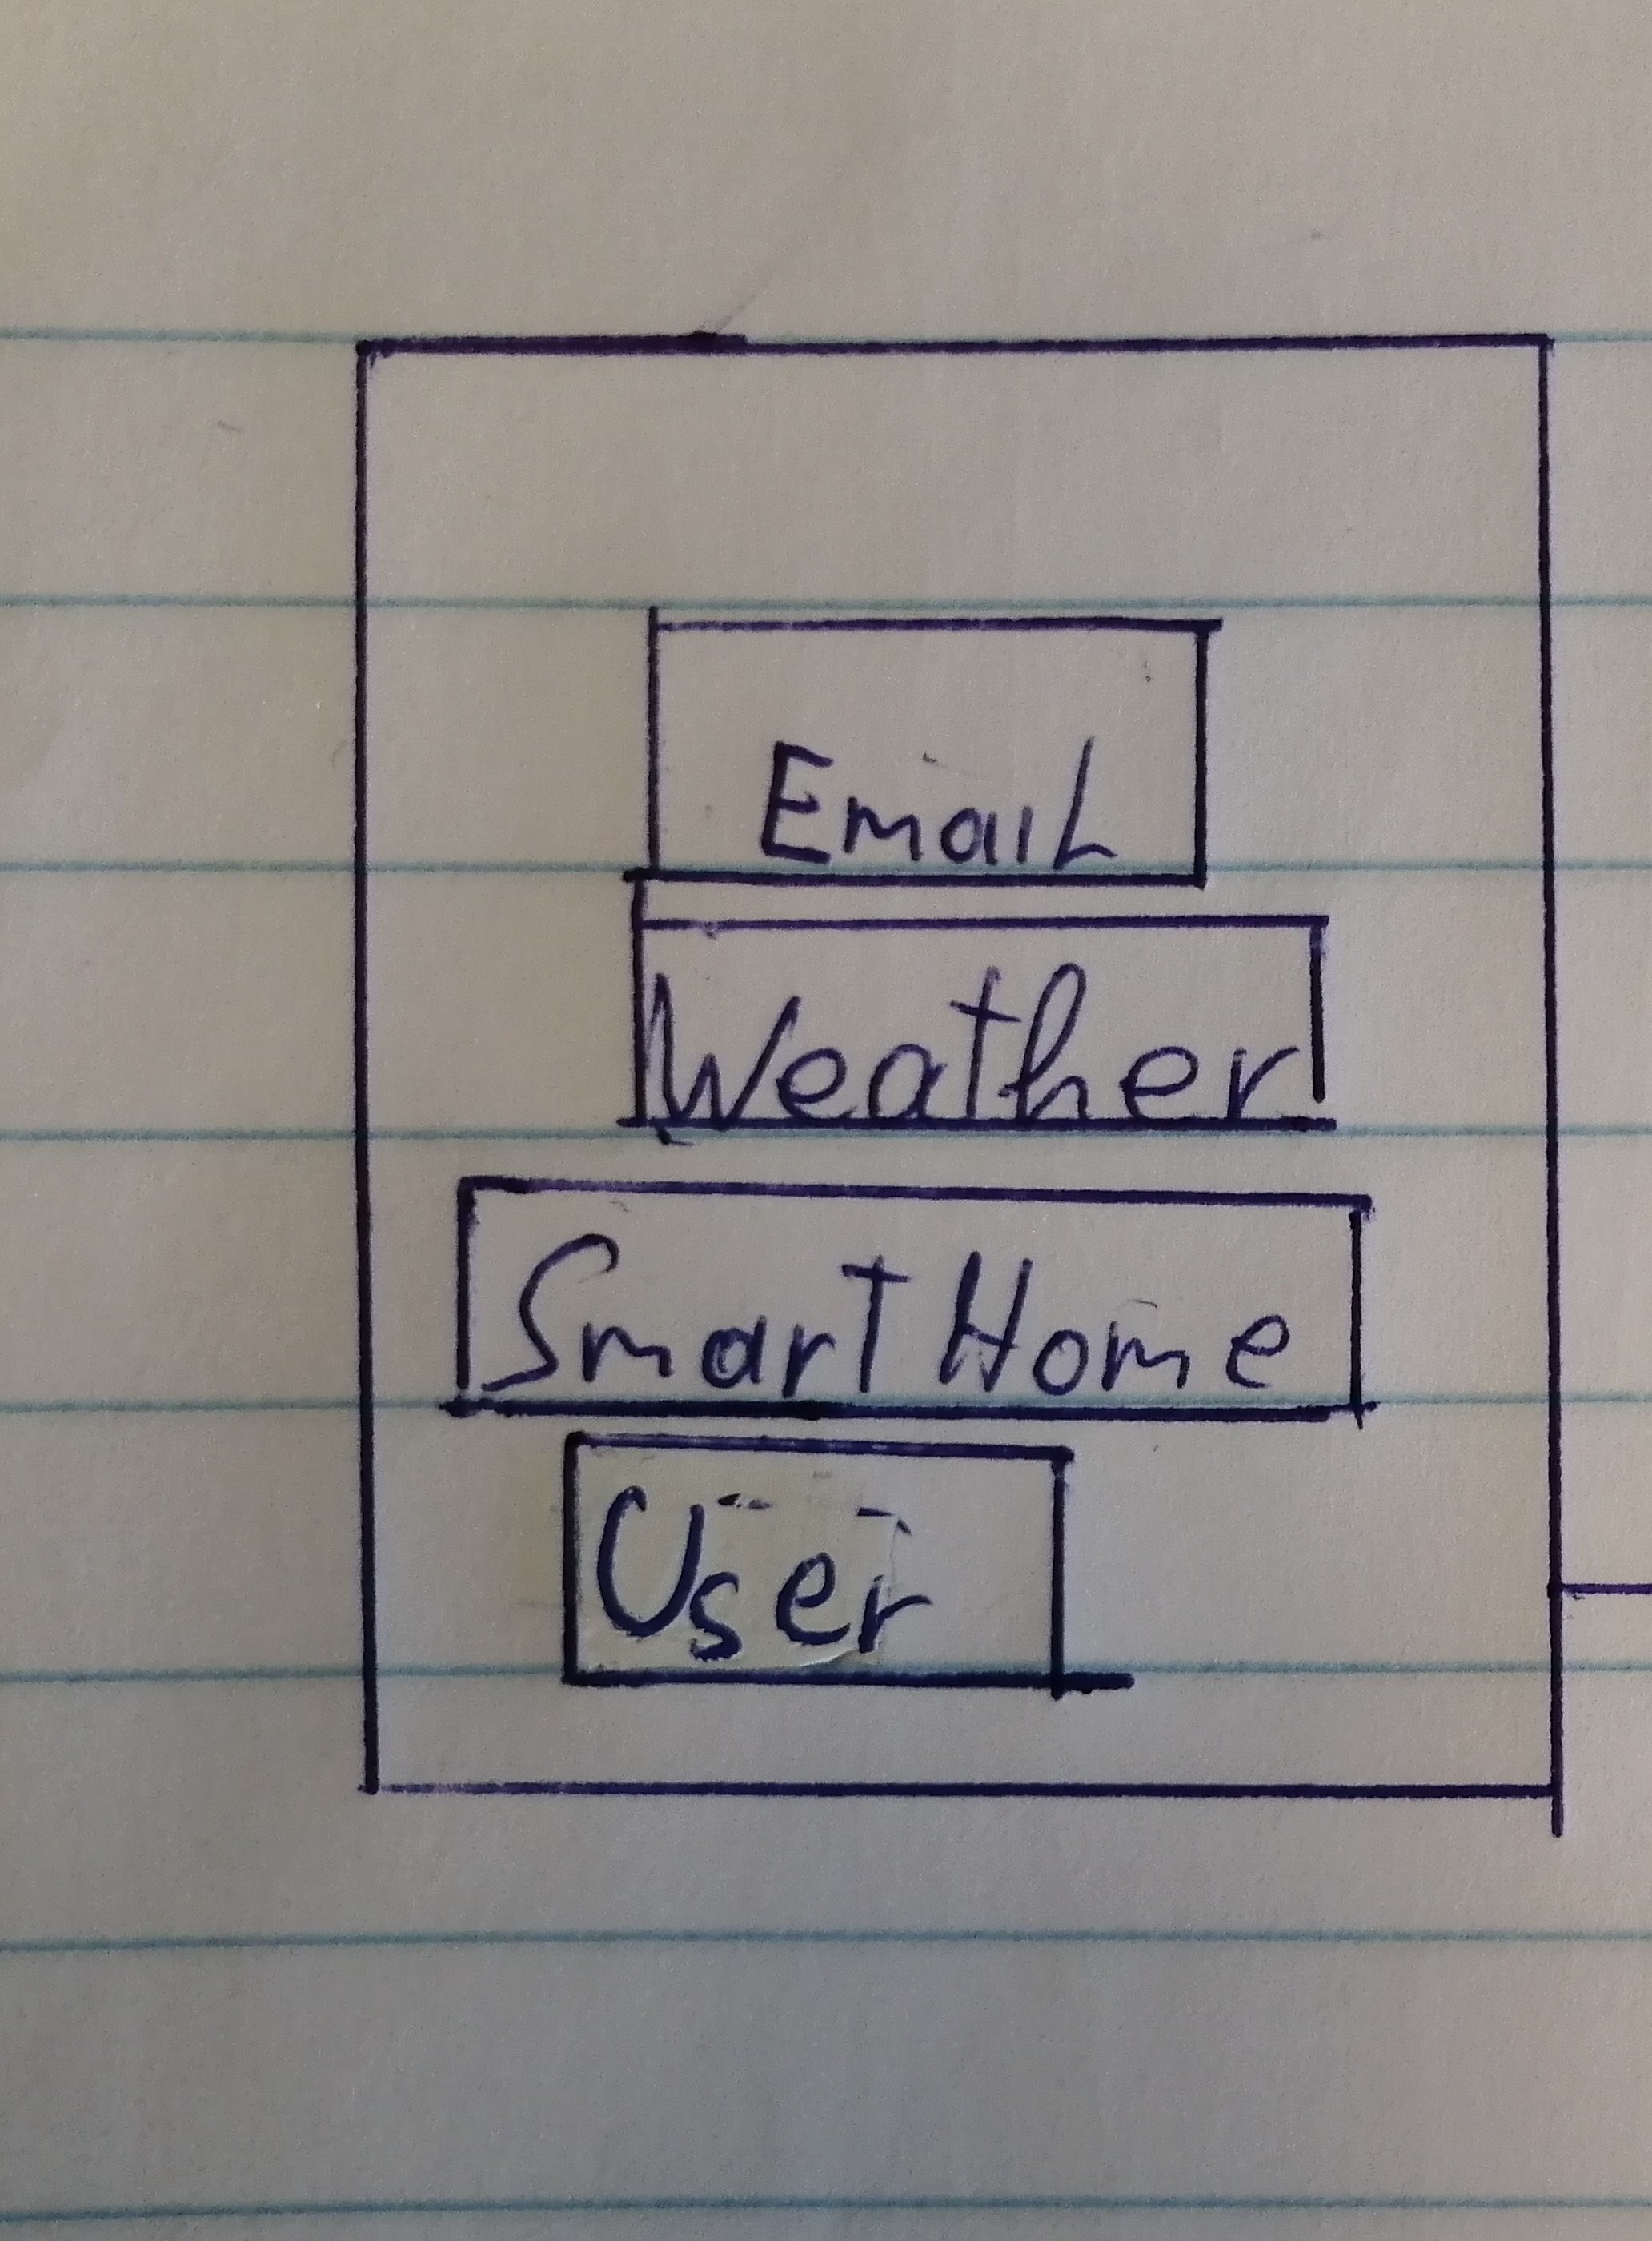 Email
Weather
Smart Home
User